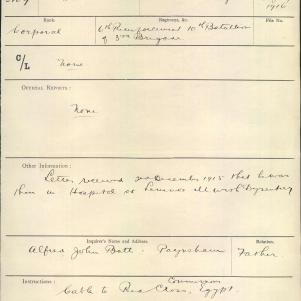 1916
Rank. Regiment, &c. File No.
Corporal 6th Reinforcement 10th Battalion
of 3rd Brigade
C/L None
OFFICIAL REPORTS :
None
Other Information :
Letter received December 1915 that he was
then in Hospital at Lemnos ill with Dysentery
Inquirer's Name and Address. Relation.
Alfred John Batt - Payneham Father
Instructions : Commission
Cable to Red Cross, Egypt.